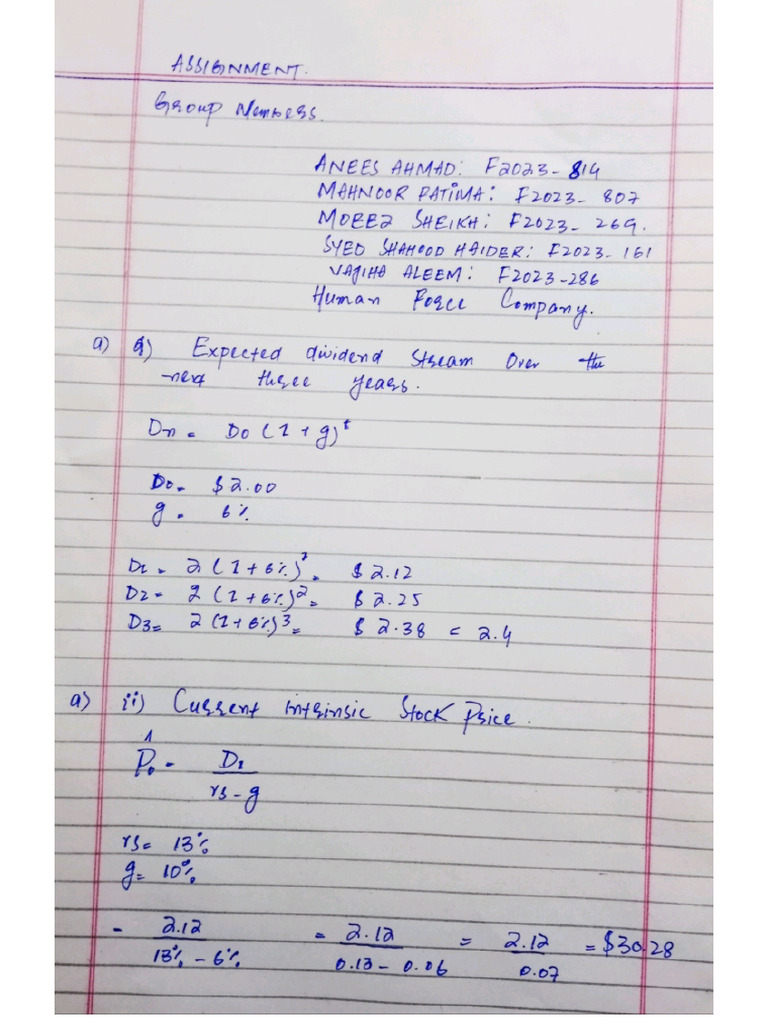 ASSIGNMENT.
Group Members.
ANEES AHMAD: F2023-814
MAHNOOR FATIMA: F2023- 807
MOEEZ SHEIKH: F2023- 269.
SYED SHAHOOD HAIDER: F2023- 161
VAJIHA ALEEM: F2023-286
Human Force Company.
a) i) Expected dividend stream over the
next three years.
Dn = D0 (1 + g)^t
D0 = $2.00
g = 6%
D1 = 2 (1+6%)^1 = $2.12
D2 = 2 (1+6%)^2 = $2.25
D3 = 2 (1+6%)^3 = $2.38 = 2.4
a) ii) Current intrinsic Stock Price.
P̂0 = D1 / rs - g
rs = 13%
g = 10%
= 2.12 / 13% - 6% = 2.12 / 0.13 - 0.06 = 2.12 / 0.07 = $30.28